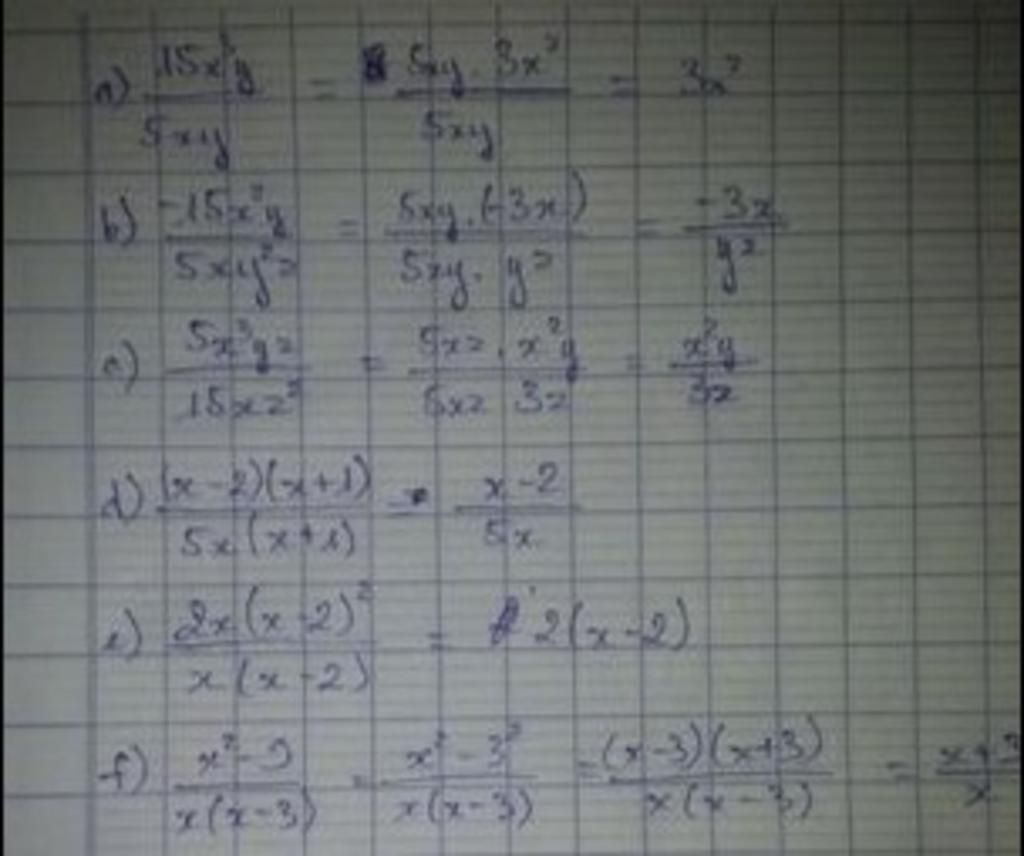 a) 15x³y / 5xy = 5xy . 3x² / 5xy = 3x²
b) -15x²y / 5xy²z = 5xy . (-3x) / 5xy . yz = -3x / yz
c) 5x³yz / 15xz² = 5xz . x²y / 5xz 3z = x²y / 3z
d) (x-2)(x+1) / 5x(x+1) = x-2 / 5x
e) 2x(x-2)² / x(x-2) = 2(x-2)
f) x²-9 / x(x-3) = x²-3² / x(x-3) = (x-3)(x+3) / x(x-3) = x+3 / x